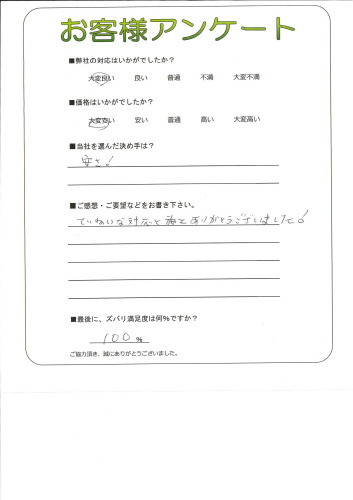 お客様アンケート
■弊社の対応はいかがでしたか?
大変良い 良い 普通 不満 大変不満
■価格はいかがでしたか?
大変安い 安い 普通 高い 大変高い
■当社を選んだ決め手は?
安さ!
■ご感想・ご要望などをお書き下さい。
ていねいな対応と施工ありがとうございました!
■最後に、ズバリ満足度は何%ですか?
100 %
ご協力頂き、誠にありがとうございました。